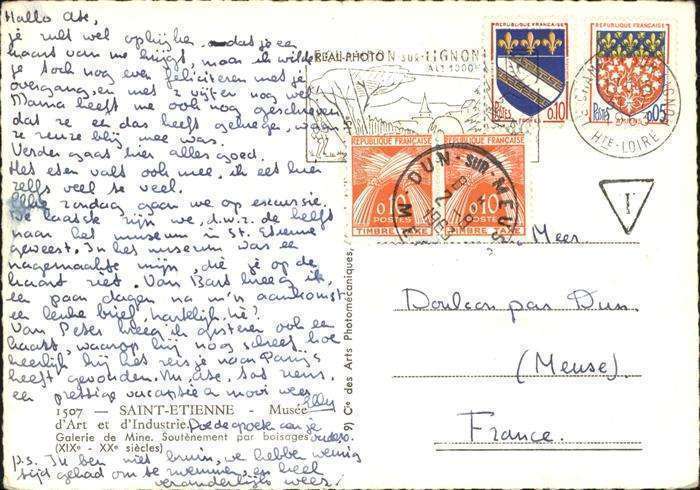 Hallo Ate,
je zult wel opkijken dat je een
kaart van me krijgt, maar ik wilde
je toch nog even feliciteren met je
overgang, en met 2 vijven nog wel
Mama heeft me ook nog geschreven
dat ze een das heeft gekregen, waar
ze reuze blij mee was.
Verder gaat hier alles goed.
Het eten valt ook mee, ik eet hier
zelfs veel te veel.
Elke zondag gaan we op excursie.
De laatste zijn we, d.w.z. de helft
naar het museum in St. Etienne
geweest. In het museum was een
nagemaakte mijn, die je op de
kaart ziet. Van Bart kreeg ik,
een paar dagen na m'n aankomst
een leuke brief, hartelijk, hè?
Van Peter kreeg ik gisteren ook een
kaart, waarop hij nog schreef hoe
heerlijk hij het reisje naar Parijs
heeft gevonden. Nu, Ate, tot ziens,
een prettige vacantie en mooi weer
Elly
1507 — SAINT-ETIENNE - Musée
d'Art et d'Industrie.
Galerie de Mine. Soutènement par boisages
(XIXe - XXe siècles)
Doe de groeten aan je
ouders.
p.s. Ik ben niet bruin, we hebben weinig
tijd gehad om te zwemmen, en heel
veranderlijk weer!
9) Cie des Arts Photomécaniques,
REAL-PHOTO
SUR-LIGNON
ALT. 1000
REPUBLIQUE FRANÇAISE
0,10
Postes
REPUBLIQUE FRANÇAISE
0,05
Postes
HTE-LOIRE
REPUBLIQUE FRANÇAISE
0,10
POSTES
TIMBRE TAXE
REPUBLIQUE FRANÇAISE
0,10
POSTES
TIMBRE TAXE
DUN-SUR-MEUSE
1963
T
Meer
Doulcon par Dun.
(Meuse).
France.